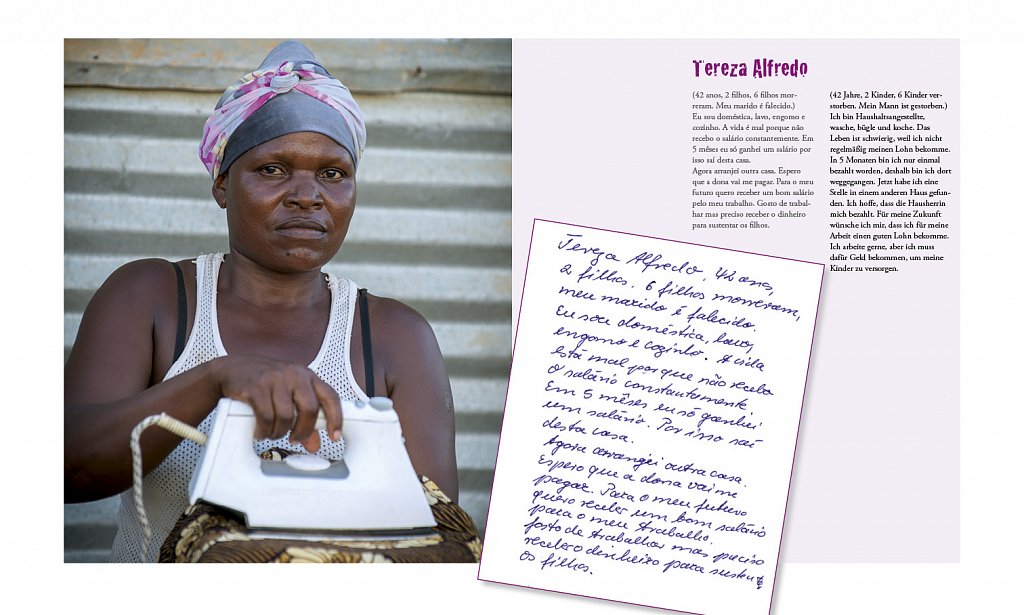 Tereza Alfredo
(42 anos, 2 filhos, 6 filhos mor-
reram. Meu marido é falecido.)
Eu sou doméstica, lavo, engomo e
cozinho. A vida é mal porque não
recebo o salário constantemente. Em
5 mêses eu só ganhei um salário por
isso saí desta casa.
Agora arranjei outra casa. Espero
que a dona vai me pagar. Para o meu
futuro quero receber um bom salário
pelo meu trabalho. Gosto de trabal-
har mas preciso receber o dinheiro
para sustentar os filhos.
(42 Jahre, 2 Kinder, 6 Kinder ver-
storben. Mein Mann ist gestorben.)
Ich bin Haushaltsangestellte,
wasche, bügle und koche. Das
Leben ist schwierig, weil ich nicht
regelmäßig meinen Lohn bekomme.
In 5 Monaten bin ich nur einmal
bezahlt worden, deshalb bin ich dort
weggegangen. Jetzt habe ich eine
Stelle in einem anderen Haus gefun-
den. Ich hoffe, dass die Hausherrin
mich bezahlt. Für meine Zukunft
wünsche ich mir, dass ich für meine
Arbeit einen guten Lohn bekomme.
Ich arbeite gerne, aber ich muss
dafür Geld bekommen, um meine
Kinder zu versorgen.
Tereza Alfredo, 42 anos,
2 filhos. 6 filhos morreram,
meu marido é falecido.
Eu sou doméstica, lavo,
engomo e cozinho. A vida
está mal porque não recebo
o salário constantemente.
Em 5 mêses eu só ganhei
um salário. Por isso saí
desta casa.
Agora arranjei outra casa.
Espero que a dona vai me
pagar. Para o meu futuro
quero receber um bom salário
para o meu trabalho.
Gosto de trabalhar mas preciso
receber o dinheiro para
os filhos.